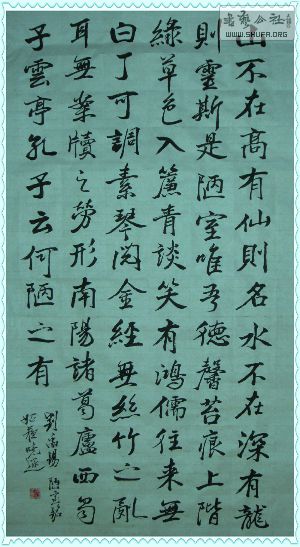 書藝公社
WWW.SHUFA.ORG
山不在高有仙則名水不在深有龍
則靈斯是陋室唯吾德馨苔痕上階
綠草色入簾青談笑有鴻儒往來無
白丁可調素琴閱金經無絲竹之亂
耳無案牘之勞形南陽諸葛廬西蜀
子雲亭孔子云何陋之有
劉禹錫 陋室銘